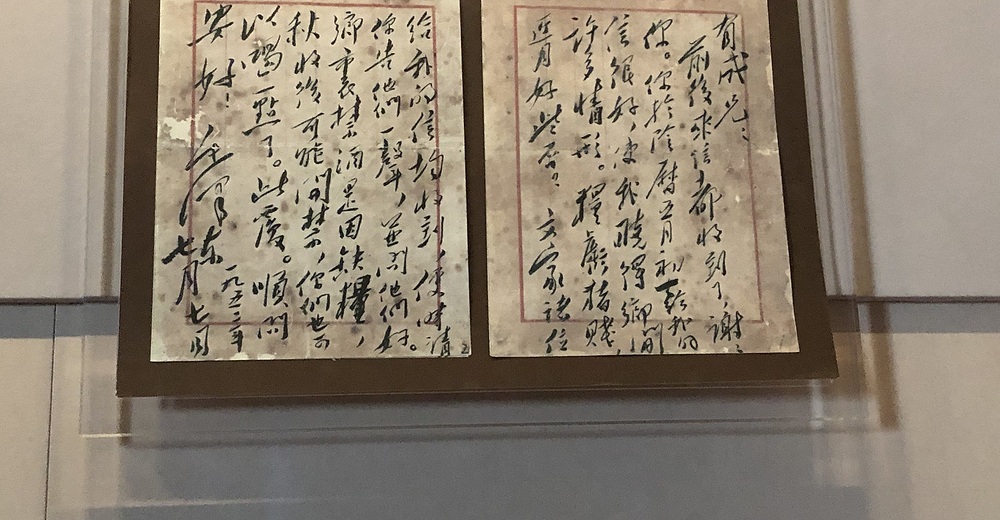 有成兄：
前後來信都收到了，謝謝
你。你於陰曆五月初給我的
信很好，使我曉得鄉間
許多情形。糧虧猪賤，
近月好些否？文家諸位
給我的信均收到，便時請
你告他們一聲，並問他們好。
鄉里禁酒是因缺糧，
秋收後可能開禁，你們也可
以喝一點了。此覆。順問
安好！
毛澤東
一九五二年
七月七日
2